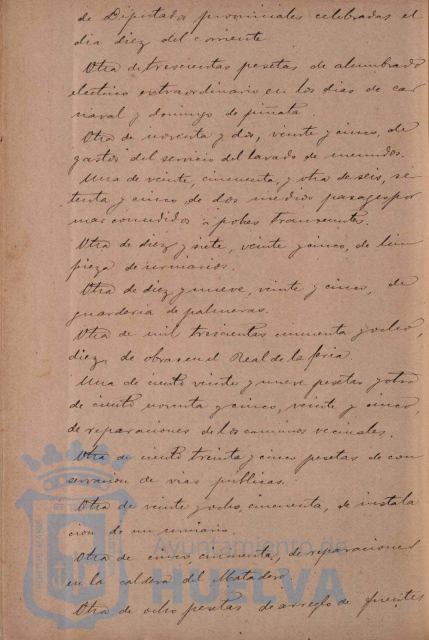 de Diputados provinciales celebradas el
dia diez del corriente
Otra de trescientas pesetas de alumbrado
electrico extraordinario en los dias de car
naval y domingo de piñata.
Otra de noventa y dos, veinte y cinco, de
gastos del servicio del lavado de menudos.
Una de veinte, cincuenta, y otra de seis, se
tenta y cinco de dos medios pasages por
mar concedidos á pobres transeuntes.
Otra de diez y siete, veinte y cinco, de lim
pieza de urinarios.
Otra de diez y nueve, veinte y cinco, de
guarderia de palmeras.
Otra de mil trescientas cincuenta y ocho,
diez, de obras en el Real de la feria.
Una de ciento veinte y nueve pesetas y otra
de ciento noventa y cinco, veinte y cinco,
de reparaciones de los caminos vecinales.
Otra de ciento treinta y cinco pesetas de con
servacion de vias publicas.
Otra de veinte y ocho, cincuenta, de instala
cion de un urinario.
Otra de cinco cincuenta, de reparaciones
en la caldera del Matadero.
Otra de ocho pesetas de arreglo de fuentes
Ayuntamiento de
HUELVA